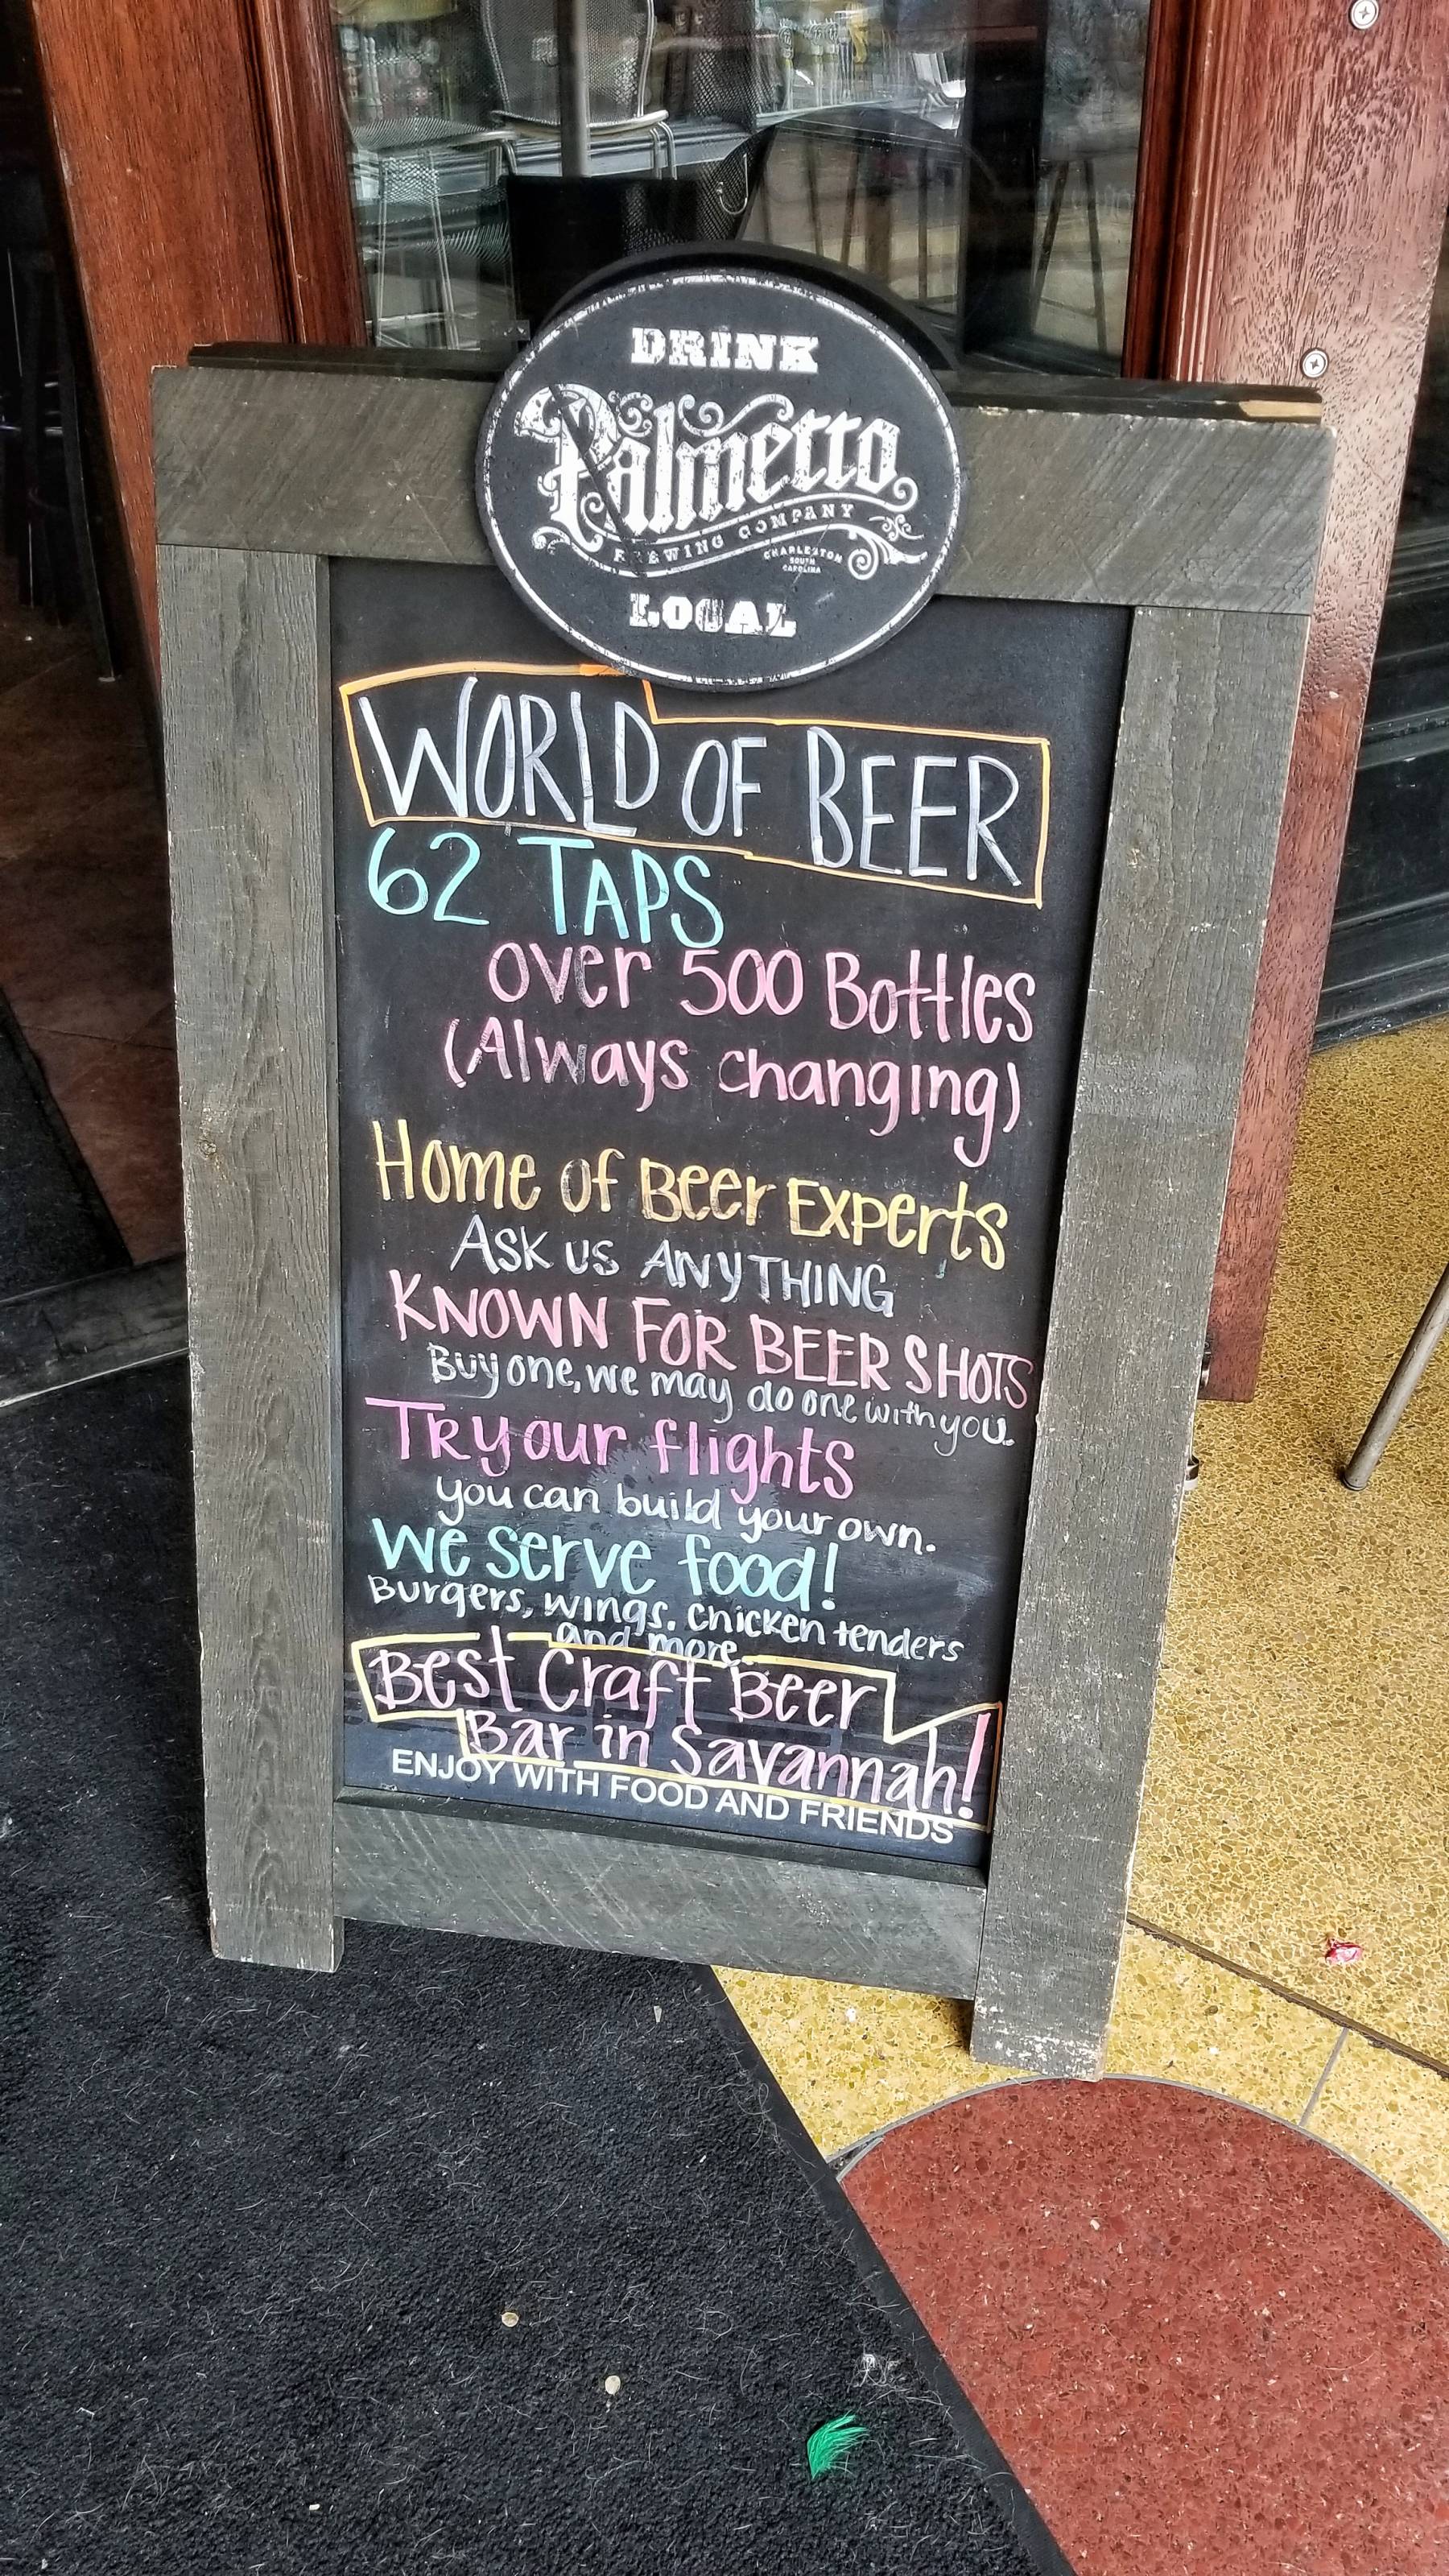 DRINK
Palmetto
BREWING COMPANY
CHARLESTON
SOUTH
CAROLINA
LOCAL
WORLD OF BEER
62 TAPS
over 500 Bottles
(Always changing)
Home of Beer Experts
ASK us ANYTHING
KNOWN FOR BEER SHOTS
Buy one, we may do one with you.
TRy our flights
you can build your own.
We serve food!
Burgers, wings, chicken tenders
and more
Best Craft Beer
Bar in Savannah!
ENJOY WITH FOOD AND FRIENDS